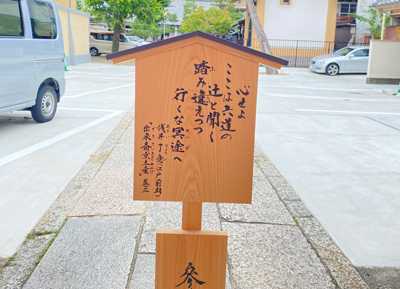 心せよ
ここは六道の
辻と聞く
踏み違えつつ
行くな冥途へ
浅井了意(江戸前期)
『出来斎京土産』巻三
參